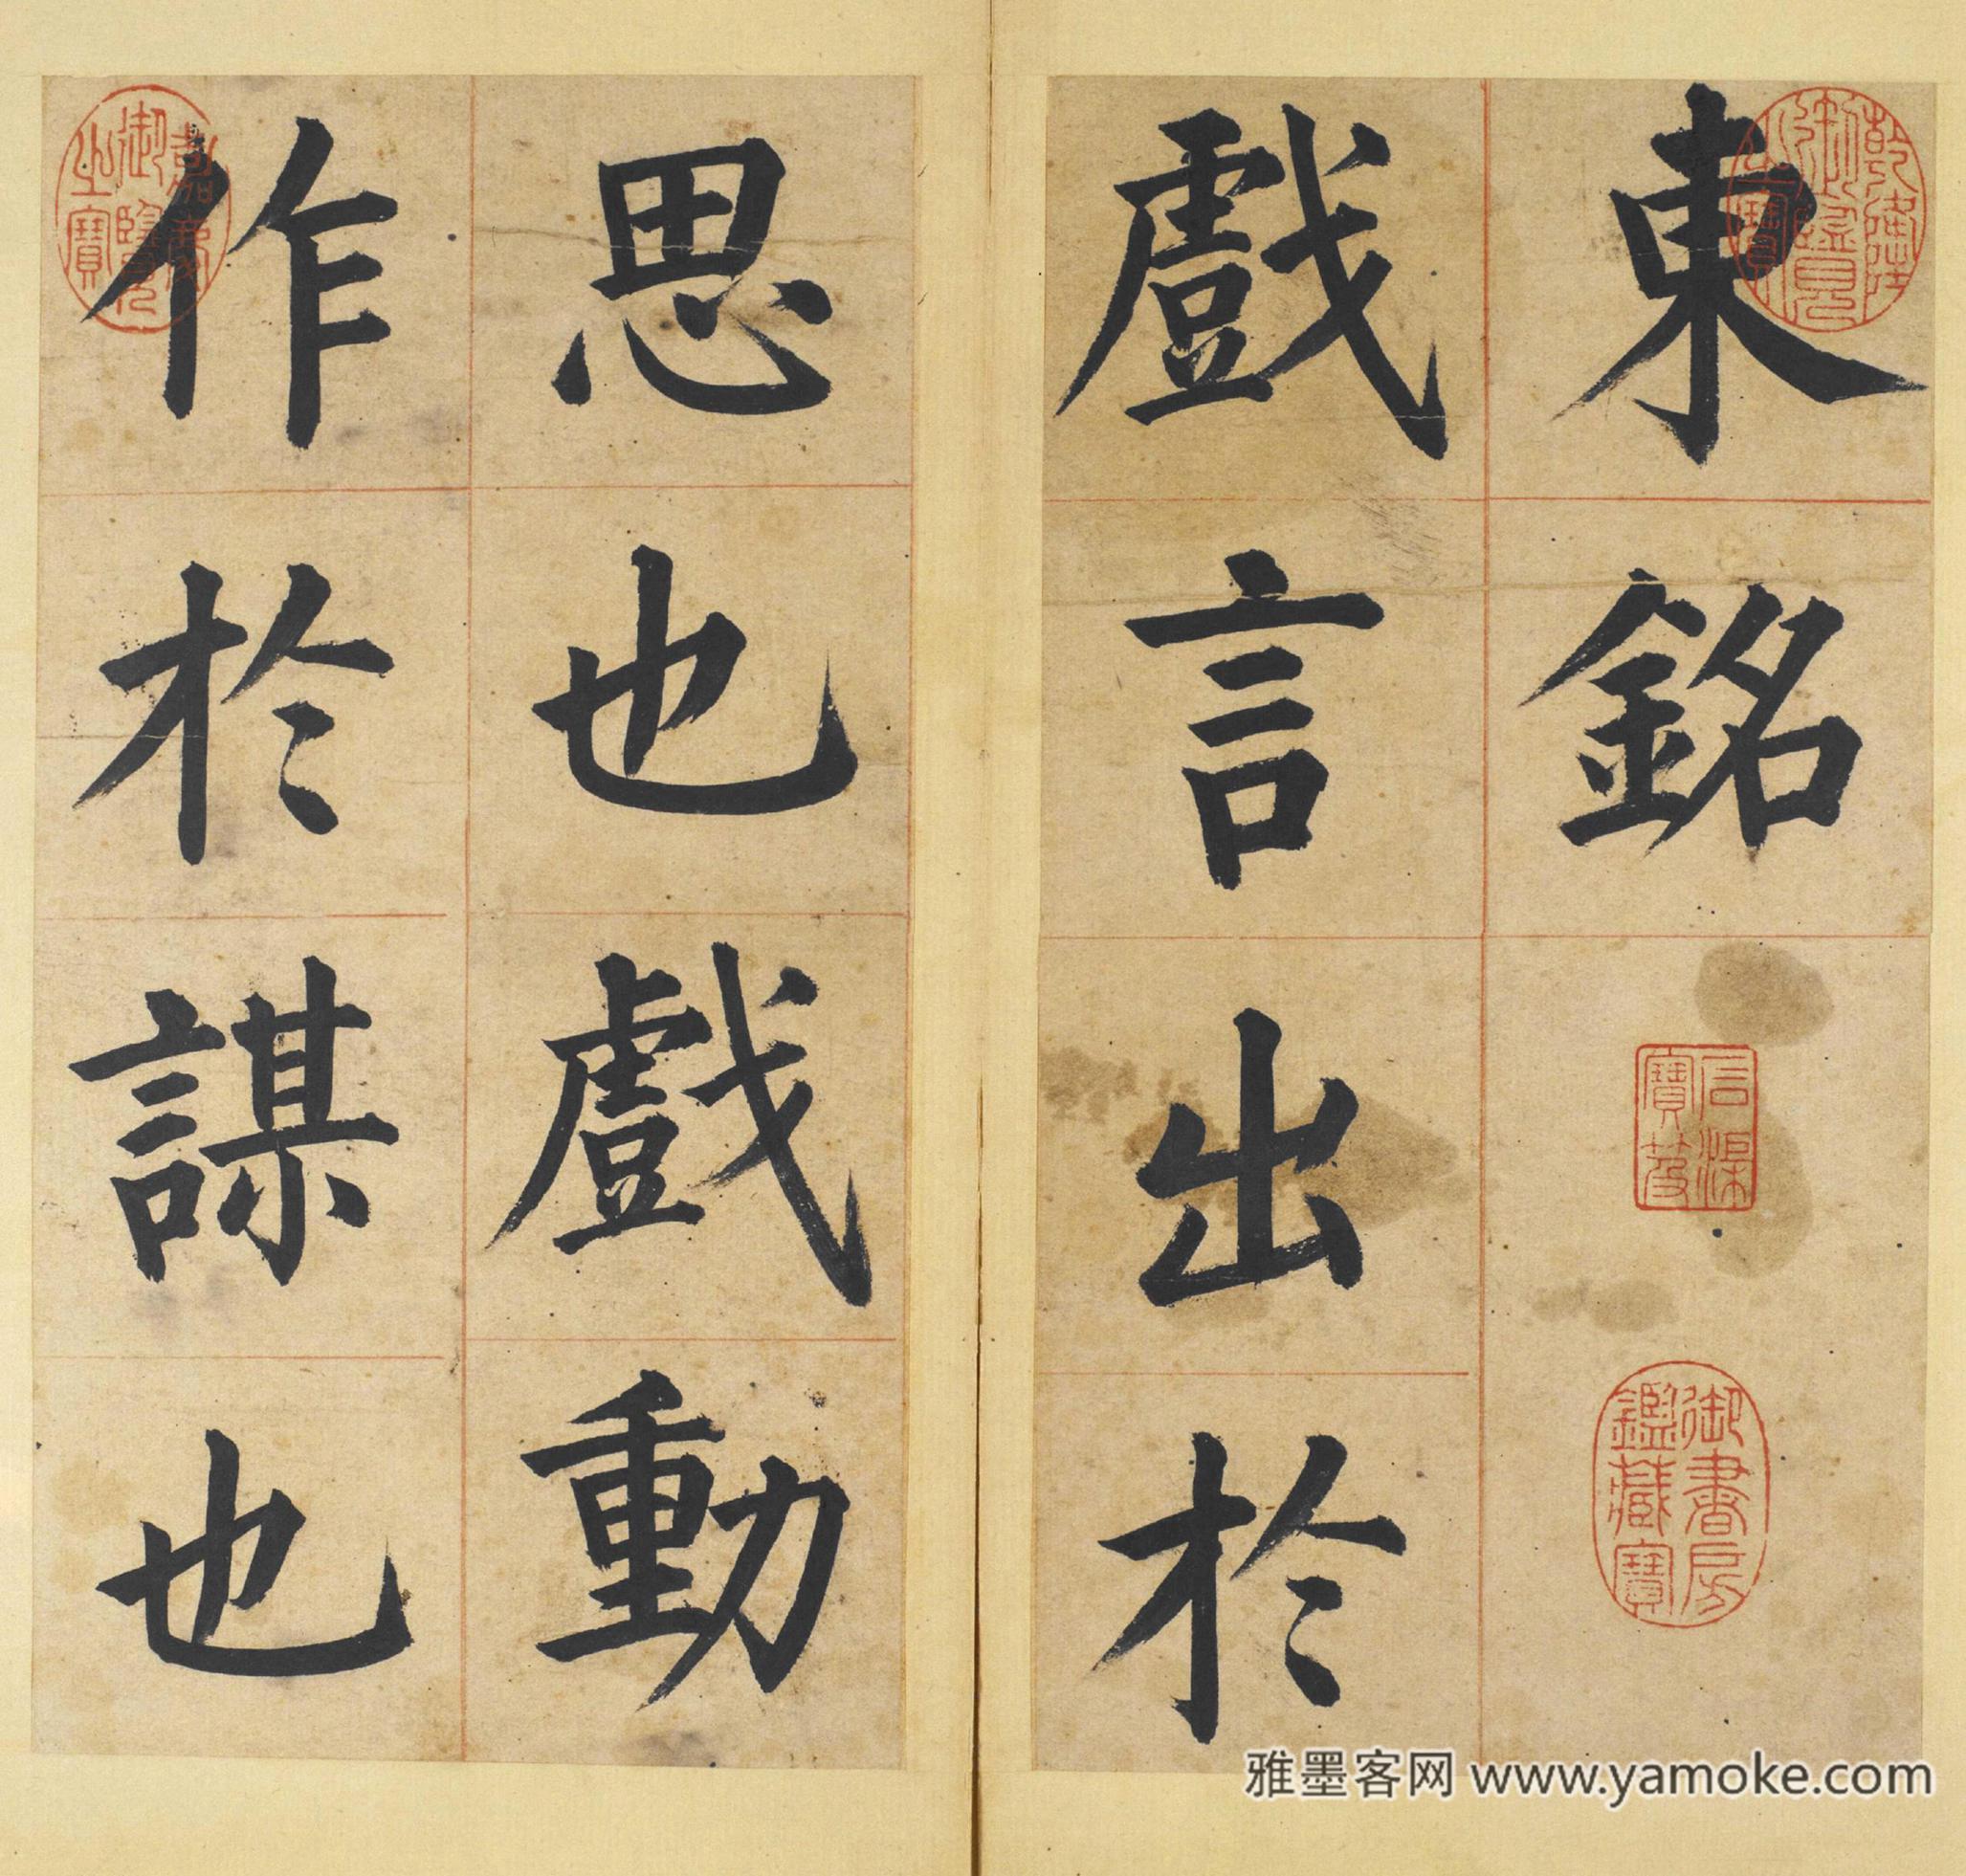 東銘
戲言出於
思也戲動
作於謀也
乾隆御覽之寶
嘉慶御覽之寶
御書房鑑藏寶
雅墨客网 www.yamoke.com